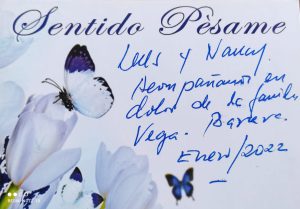 Sentido Pèsame
Luis y Nancy.
Acompañamos en
dolor de la familia
Vega. Barrera.
Enero/2022